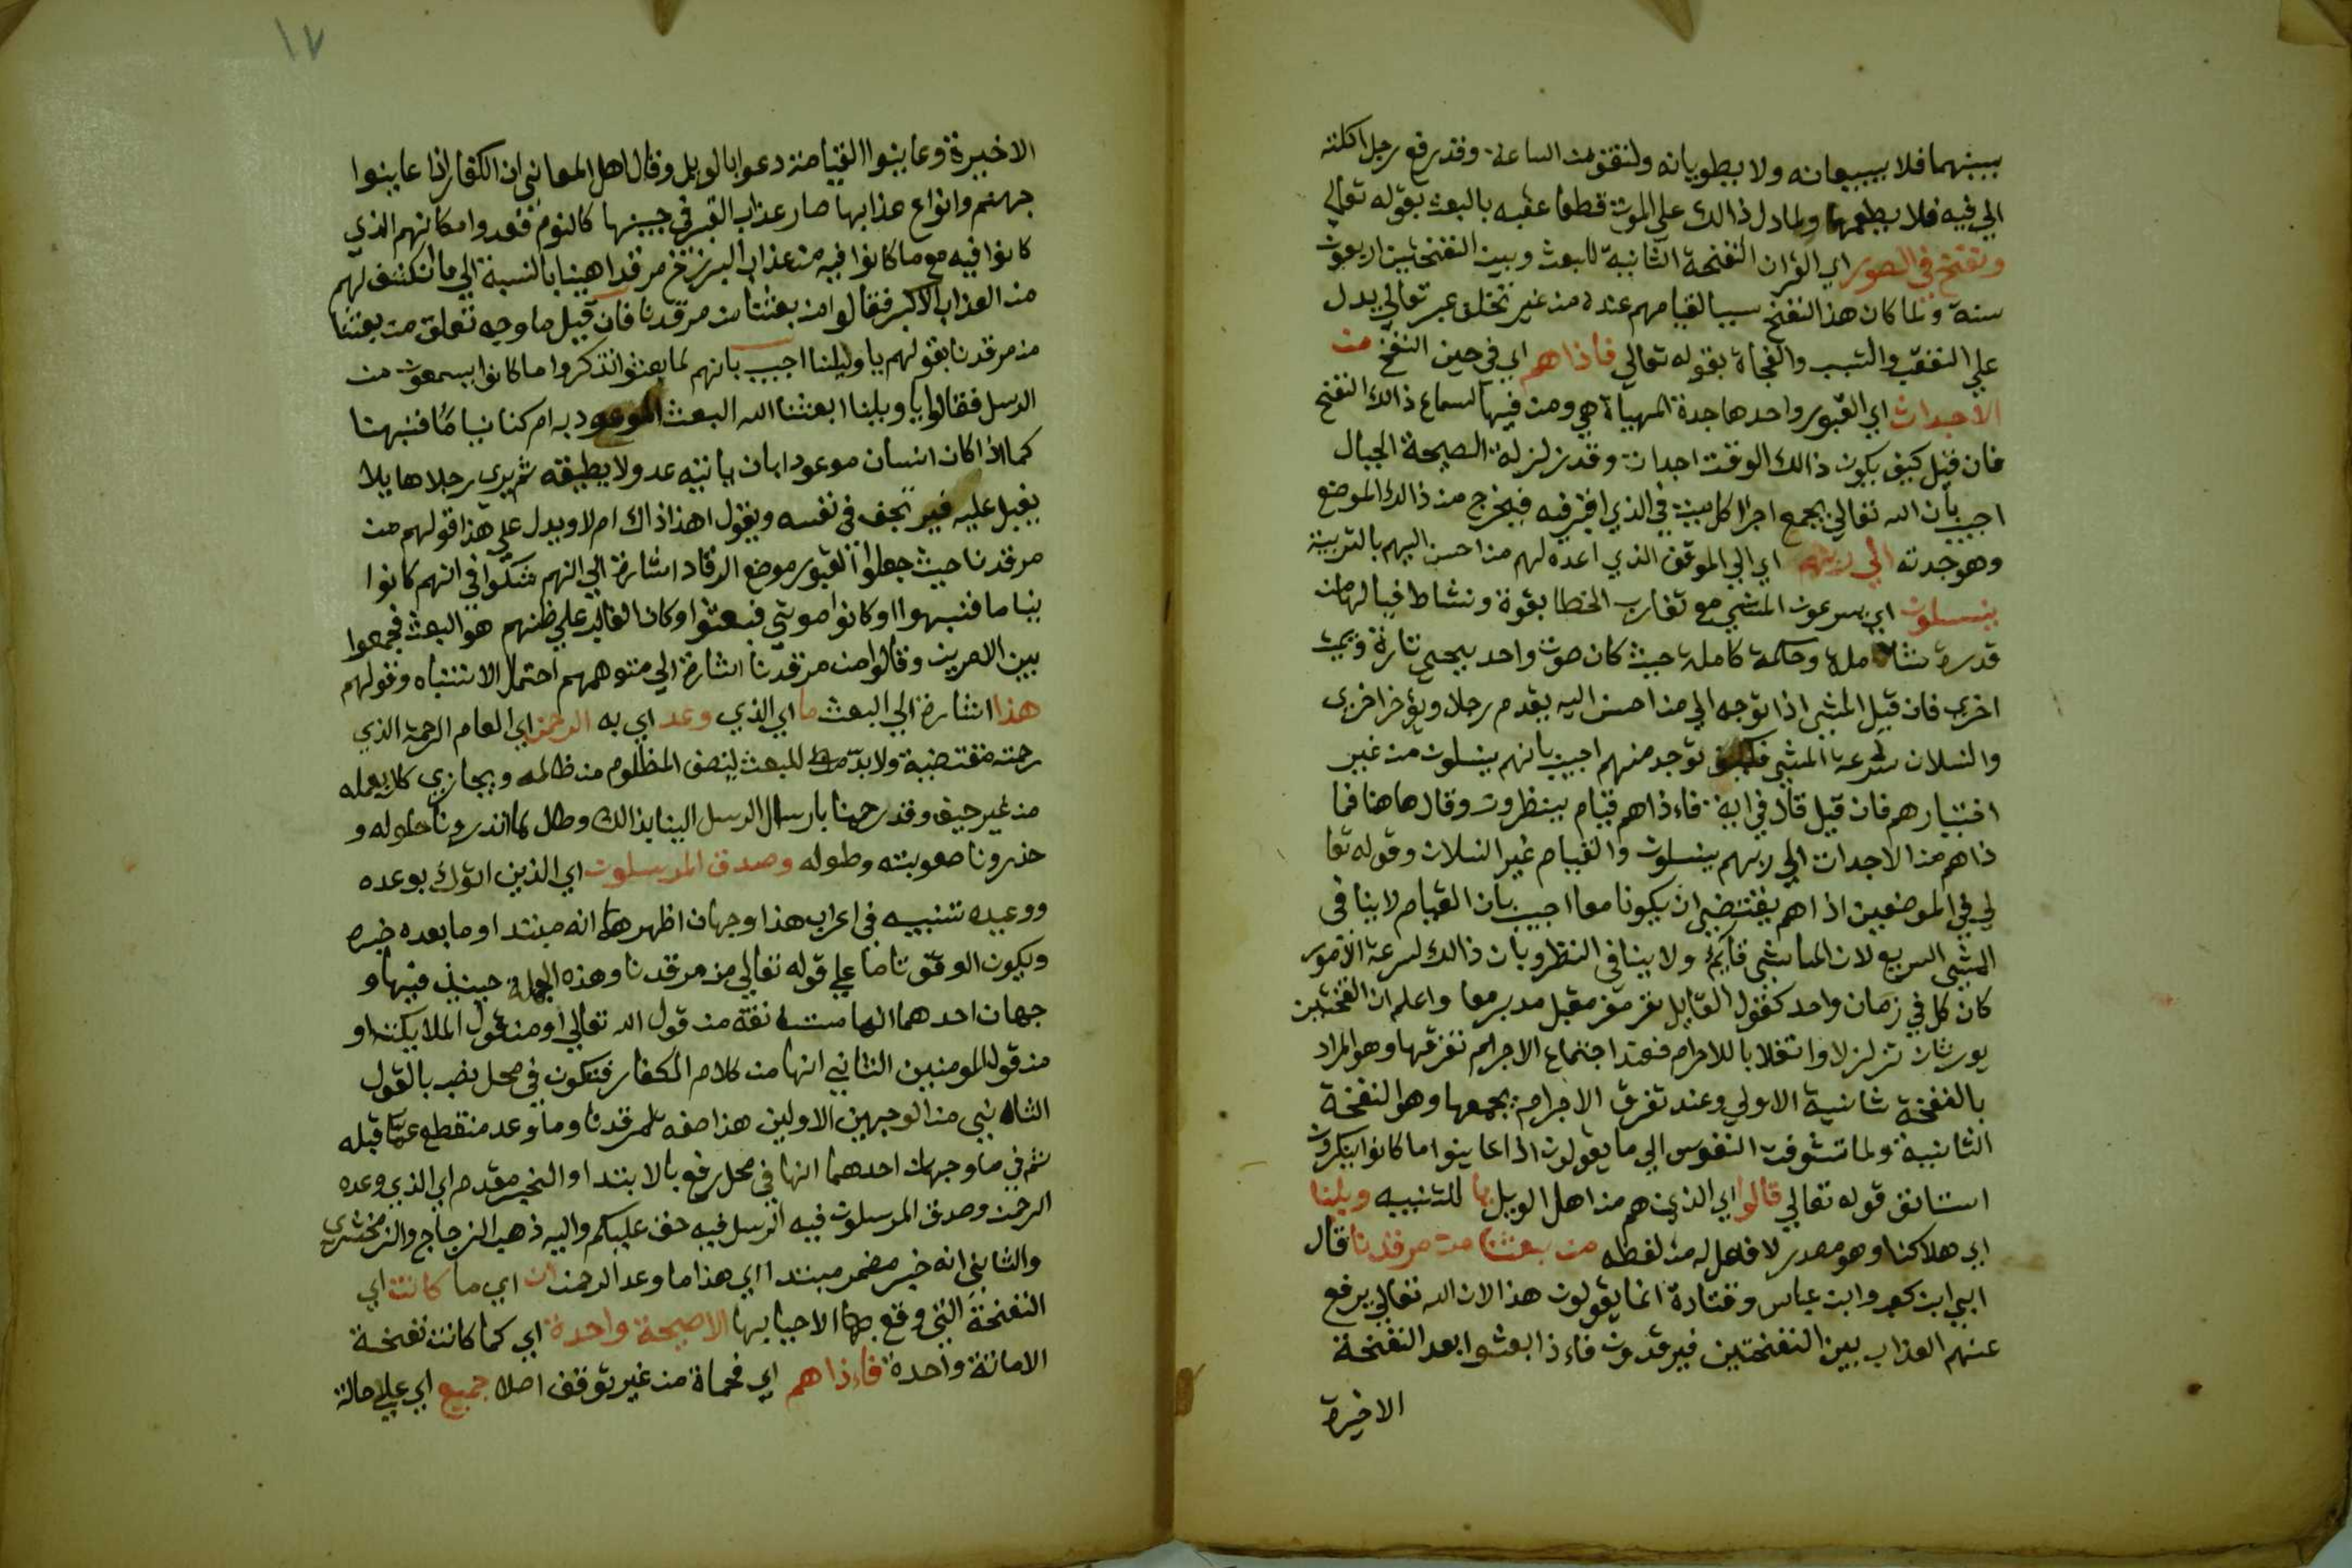 بينهما فلا يبيعانه ولا يطويانه ولتقومن الساعة وقد رفع رجل اكلته
الي فيه فلا يطعمها ولما دل ذالك علي الموت قطعا عقبه بالبعث بقوله تعالي
ونفخ في الصور اي القرن النفخة الثانية للبعث وبين النفختين اربعون
سنة ولما كان هذا النفخ سببا لقيامهم عنده من غير تخلق عبر تعالي يدل
علي التعقب والتسبب والفجاة بقوله تعالي فاذا هم اي في حين النفخ من
الاجداث اي القبور واحدها جدة المهياة هي ومن فيها لسماع ذالك النفخ
فان قيل كيف يكون ذالك الوقت اجداث وقد زلزلة الصيحة الجبال
اجيب بأن الله تعالي يجمع اجزا كل ميت في الذي اقبر فيه فيخرج من ذالك الموضع
وهو جدثه الي ربهم اي الي الموقف الذي اعده لهم من احسن اليهم بالتربية
ينسلون اي يسرعون المشي مع تقارب الخطا بقوة ونشاط فيا لها من
قدرة شاملة وحكمة كاملة حيث كان صوت واحد يحيي تارة ويميت
اخري فان قيل المشي اذا توجه الي من احسن اليه يقدم رجلا ويؤخر اخري
والنسلان سرعة المشي فكيف توجد منهم اجيب بانهم ينسلون من غير
اختيارهم فان قيل قال في اية فاءذا هم قيام ينظرون وقال هاهنا فما
ذا هم من الاجداث الي ربهم ينسلون والقيام غير النسلان وقوله تعا
لي في الموضعين اذا هم يقتضي ان يكونا معا اجيب بان القيام لا ينافي
المشي السريع لان الماشي قايم ولا ينافي النظر وبان ذالك لسرعة الامور
كان كل في زمان واحد كقول القايل مقر مفر مقبل مدبر معا واعلم ان النفختين
يورثان تزلزلا وانقلابا للاجرام فعند اجتماع الاجرام تفرقها وهو المراد
بالنفخة الاولي وعند تفرق الاجرام يجمعها وهو النفخة
الثانيية ولما تشوفت النفوس الي ما يقولون اذا عاينوا ما كانوا ينكرون
استانف قوله تعالي قالوا اي الذين هم من اهل الويل يا للتنبيه ويلنا
اي هلاكنا وهو مصدر لا فعل له من لفظه من بعثنا من مرقدنا قال
ابي ابن كعب وابن عباس وقتادة انما يقولون هذا لان الله تعالي يرفع
عنهم العذاب بين النفختين فيرقدون فاءذا بعثوا بعد النفخة
الاخيرة
١٧
الاخيرة وعاينوا القيامة دعوا بالويل وقال اهل المعاني ان الكفار اذا عاينوا
جهنم وانواع عذابها صار عذاب القبر في جبنها كالنوم فعدوا مكانهم الذي
كانوا فيه مع ما كانوا فيه من عذاب البرزخ مرقدا هينا بالنسبة الي ما انكشف لهم
من العذاب الاكبر فقالوا من بعثنا من مرقدنا فان قيل ما وجه تعلق من بعثنا
من مرقدنا بقولهم يا ويلنا اجيب بانهم لما بعثوا تذكروا ما كانوا يسمعون من
الرسل فقالوا يا ويلنا ابعثنا الله البعث الموعود به ام كنا نياما فنبهنا
كما اذا كان انسان موعودا بان ياتيه عدو لا يطيقه ثم يري رجلا هايلا
يقبل عليه فيرتجف في نفسه ويقول اهذا ذاك ام لا ويدل علي هذا قولهم من
مرقدنا حيث جعلوا القبور موضع الرقاد اشارة الي انهم شكوا في انهم كانوا
نياما فنبهوا او كانوا موتي فبعثوا وكان الغالب علي ظنهم هو البعث فجمعوا
بين الامرين وقالوا من مرقدنا اشارة الي متوهمهم احتمال الانتباه وقولهم
هذا اشارة الي البعث ما اي الذي وعد اي به الرحمن اي العام الرحمة الذي
رحمته مقتضية ولا بد للبعث لينصف المظلوم من ظالمه ويجازي كلا بعمله
من غير حيف وقد رحمنا بارسال الرسل الينا بذالك وطال ما انذرونا حلوله و
حذرونا صعوبته وطوله وصدق المرسلون اي الذين اتوك بوعده
ووعيده تنبيه في اعراب هذا وجهان اظهرهما انه مبتدا وما بعده خبره
ويكون الوقف تاما علي قوله تعالي من مرقدنا وهذه الجملة حينيذ فيها و
جهان احدهما انها مستانفة من قول الله تعالي او من قول الملايكة او
من قول المومنين الثاني انها من كلام الكفار فتكون في محل نصب بالقول
الثاني من الوجهين الاولين هذا صفه لمرقدنا وما وعد منقطع عما قبله
ثم في ما وجهان احدهما انها في محل رفع بالابتدا والخبر مقدم اي الذي وعده
الرحمن وصدق المرسلون فيه حق عليكم واليه ذهب الزجاج والزمخشري
والثاني انه خبر مضمر مبتدا اي هذا ما وعد الرحمن ان اي ما كانت اي
النفخة التي وقع الاحيا بها الا صيحة واحدة اي كما كانت نفخة
الاماتة واحدة فاءذا هم اي فجاة من غير توقف اصلا جميع اي علي حالة